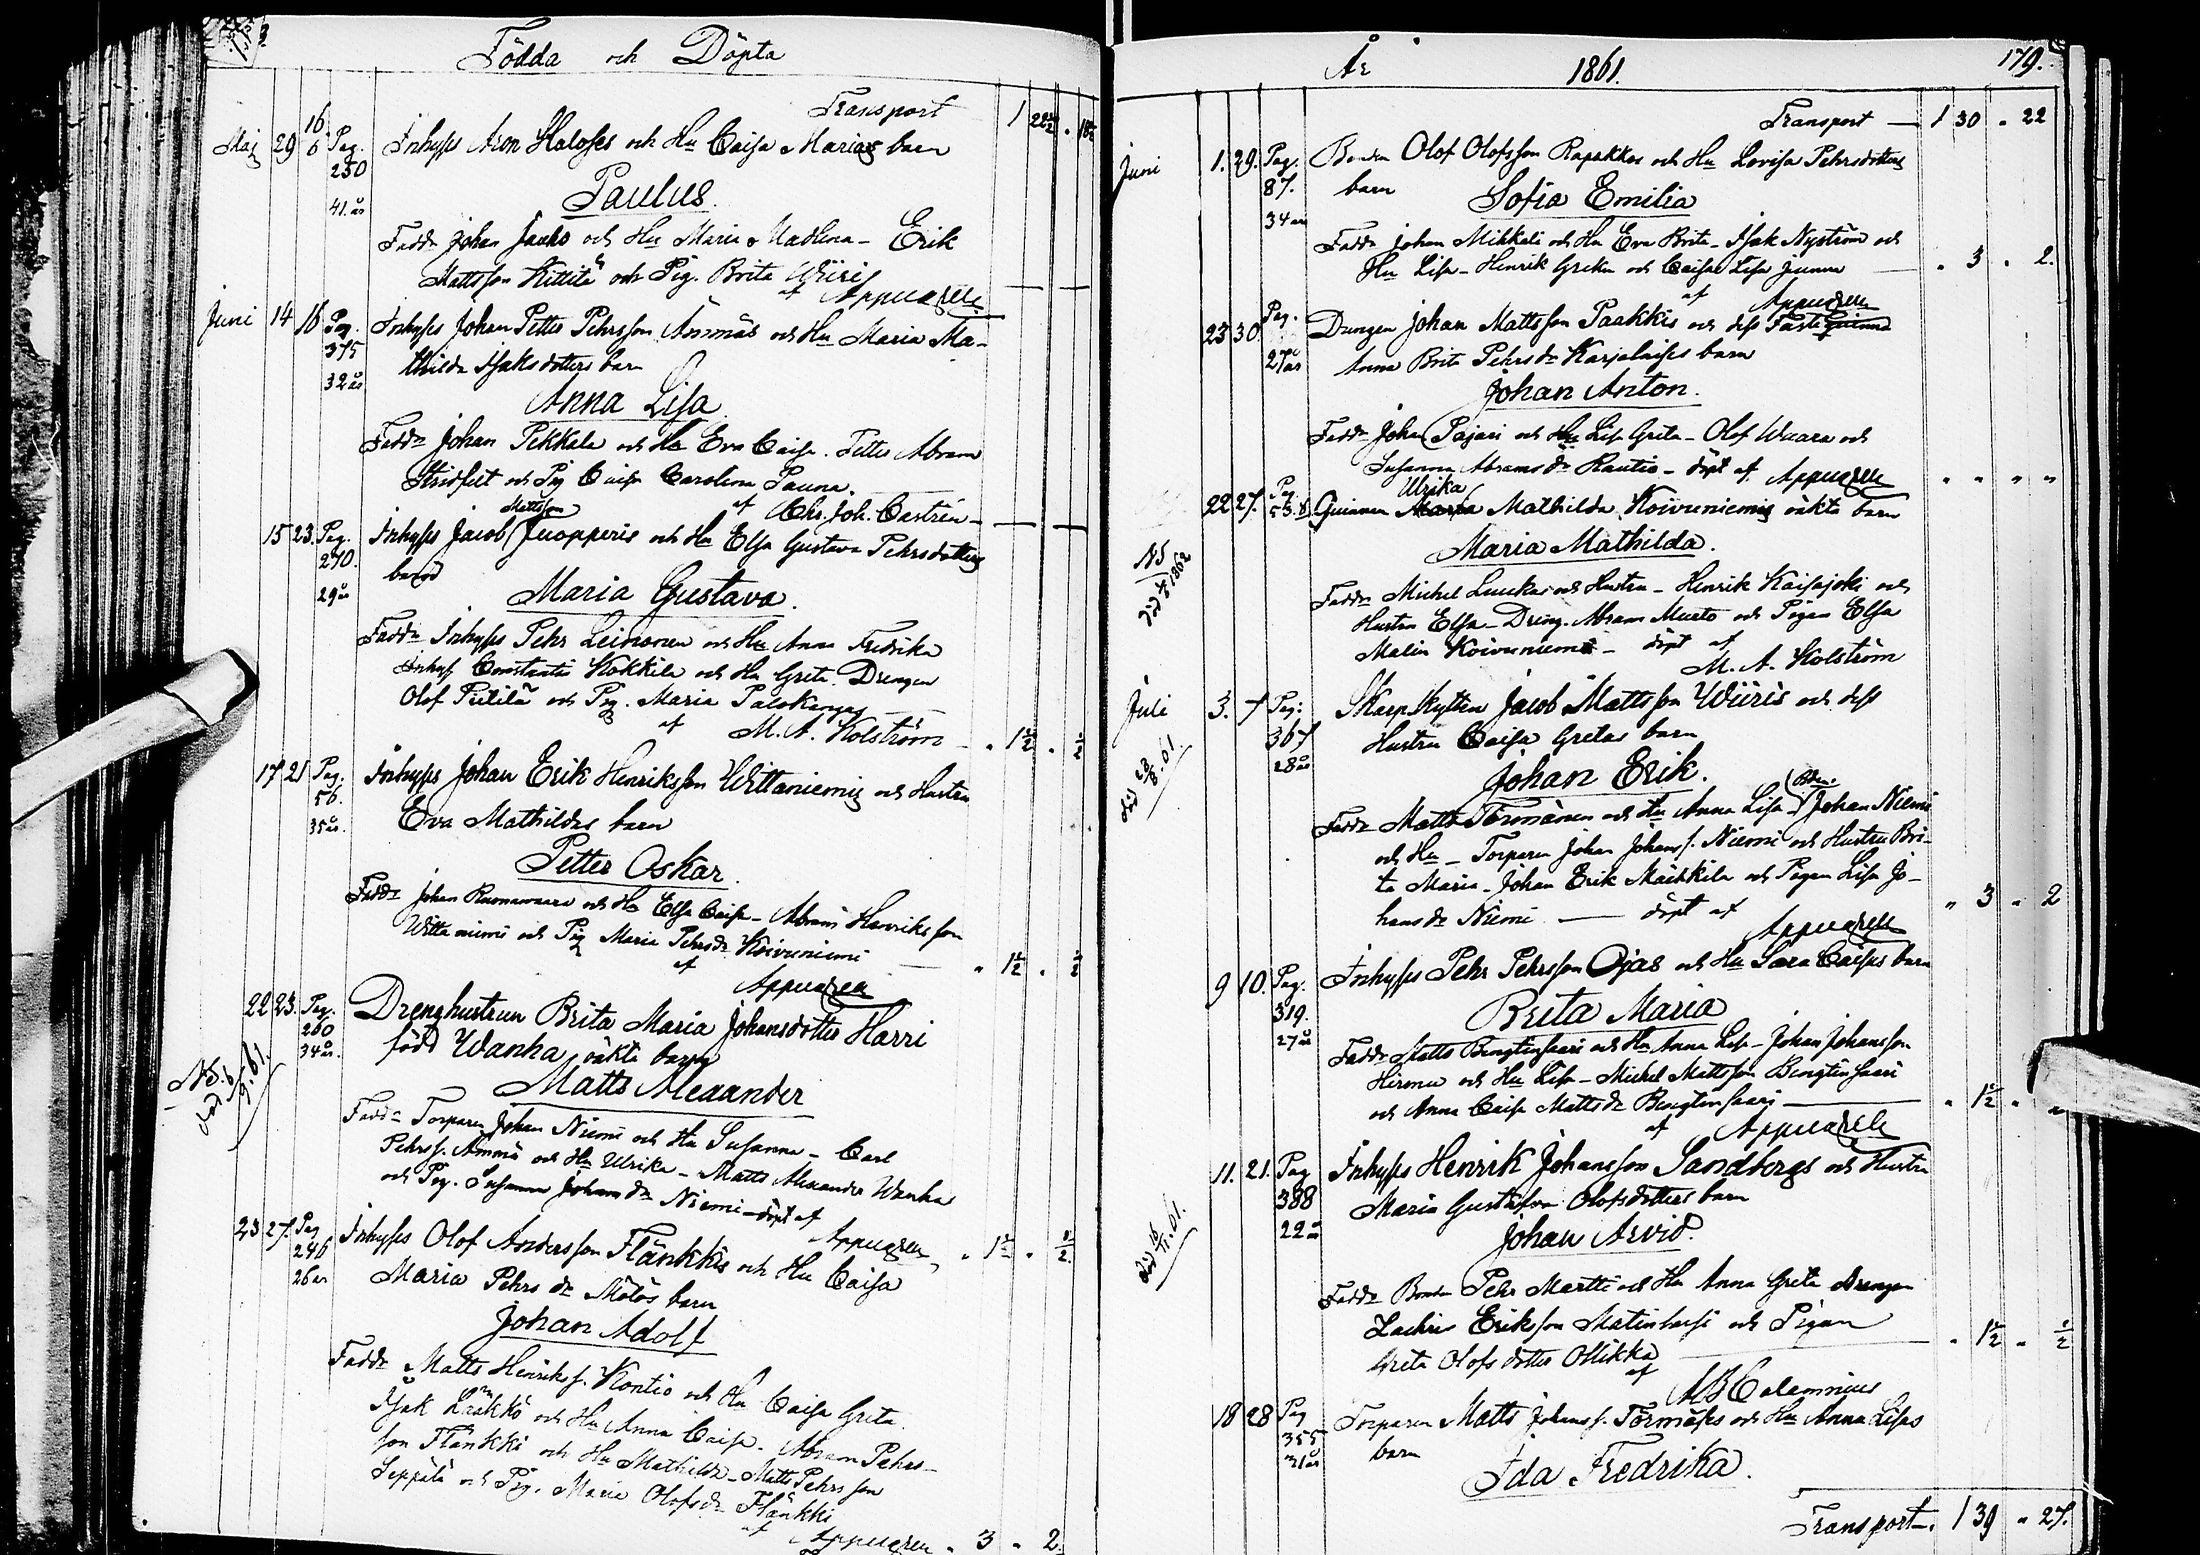 Födda och Döpta
Transport 1 22½ " 18½
Maj 29 16/6 Pag. 250 41 år Inhyses Aron Haloses och Hu Caisa Marias barn
Paulus.
Fadde Johan Jaako och Hu Maria Madlena - Erik
Mattsson Kittilä och Pig. Brita Wiiri
af Appelgren
Juni 14 16 Pag. 375 32 år Inhyses Johan Petter Pehrsson Ämmäs och Hu Maria Ma-
thilda Isaksdotters barn
Anna Lisa
Fadde Johan Pekkala och Hu Eva Caisa. Petter Abram
Stridfelt och Pig Caisa Carolina Pauna.
af Chr. Joh. Castrén
15 23. Pag. 270. 29 år Inhyses Jacob Mattsson Juopperis och Hu Elsa Gustava Pehrsdotters
barn
Maria Gustava.
Fadde Inhyses Pehr Leinonen och Hu Anna Fredrika
Inhys Constantin Kokkila och Hu Greta. Drengen
Olof Pietilä och Pig. Maria Palokangas
af M. A. Holström " 1½ " ½
17 21 Pag. 56. 35 år. Inhyses Johan Erik Henriksson Wittaniemis och Hustru
Eva Mathildas barn
Petter Oskar.
Fadde Johan Raonawaara och Hu Elsa Caisa - Abram Henriksson
Wittaniemi och Pig Maria Pehrsdr Koivuniemi " 1½ " ½
af
Appelgren
22 23. Pag. 260 34 år. Drenghustrun Brita Maria Johansdotter Harri
född Wanha oäkta barn
Matts Alexander
Fadde Torparen Johan Niemi och Hu Susanna - Carl
Pehrss. Ämmä och Hu Ulrika - Matts Alexander Wanha
och Pig. Susanna Johansdr Niemi - döpt af
Appelgren " 1½ " ½
23 27. Pag 246 26 år Inhyses Olof Andersson Flänkkis och Hu Caisa
Maria Pehrsdr Mötös barn
Johan Adolf
Fadde Matts Henrikss. Kontio och Hu Caisa Greta
Isak Lääkkö och Hu Anna Caisa. Abram Pehrs-
son Flänkki och Hu Mathilda - Matts Pehrsson
Seppälä och Pig. Maria Olofsdr Flänkki
af Appelgren " 3 " 2.
År 1861. 179.
Transport 1 30 " 22
Juni 1. 29. Pag. 87. 34 år Bonden Olof Olofsson Rapakkos och Hu Lovisa Pehrsdotters
barn Sofia Emilia
Fadde Johan Mikkali och Hu Eva Brita - Isak Nyström och
Hu Lisa - Henrik Greku och Caisa Lisa Junna " 3 " 2.
af Appelgren
23 30. Pag. 27 år Drengen Johan Mattsson Paakkis och dess Fästeqvinna
Anna Brita Pehrsdr Karjalaises barn
Johan Anton.
Fadde Johan Pajari och Hu Lisa Greta - Olof Waara och
Susanna Abramsdr Rautio - döpt af Appelgren " " " "
22 27. Pag Qvinnan Ulrika Mathilda Koivuniemis oäkta barn
Maria Mathilda.
Fadde Michel Luukas och Hustru - Henrik Kaisajoki och
Hustru Elsa - Dreng. Abram Musto och Pigan Elsa
Malin Koivuniemi - döpt af
M. A. Holström
Juli 3. 7 Pag. 367 28 år Skarpskytten Jacob Mattsson Wiiris och dess
Hustru Caisa Gretas barn
Johan Erik.
Fadde Matts Törmänen och Hu Anna Lisa - Bon. Johan Niemi
och Hu - Torparen Johan Johanss. Niemi och Hustru Bri-
ta Maria - Johan Erik Mäikkilä och Pigan Lisa Jo-
hansdr Niemi — döpt af " 3 " 2
Appelgren
9 10. Pag. 319. 27 år Inhyses Pehr Pehrsson Ojas och Hu Sara Caisas barn
Brita Maria
Fadde Matts Bengtinsaari och Hu Anna Lisa - Johan Johansson
Hirmu och Hu Lisa - Michel Mattsson Bengtinsaari
och Anna Caisa Mattsdr Bengtinsaari " 1½ "
af Appelgren
11. 21. Pag 388 22 år Inhyses Henrik Johansson Sandbergs och Hustru
Maria Gustafva Olofsdotters barn
Johan Arvid.
Fadde Bonden Pehr Martti och Hu Anna Greta Drengen
Zachris Eriksson Matinlassi och Pigan
Greta Olofsdotter Ollikka " 1½ " ½
af
A B Calamnius
18 28 Pag 355 31 år Torparen Matts Johanss. Törmäses och Hu Anna Lisas
barn
Ida Fredrika.
Transport. 1 39 " 27.